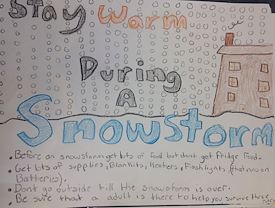 Stay Warm
During
A
Snowstorm
• Before an snowstorm get lots of food but dont get fridge food.
• Get lots of supplies, Blankits, Heaters, Flashlights, that run on
Batteries).
• Dont go outside till the snowstorm is over.
• Be sure that a adult is there to help you survive